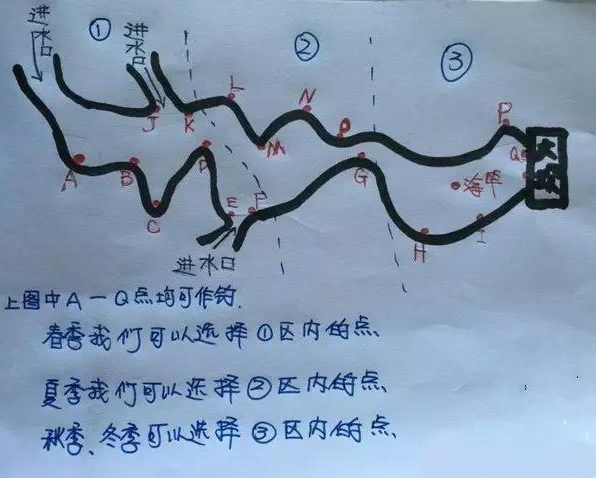 进水口
①
进水口
②
③
L
N
P
J
K
O
M
Q
大坝
D
A
B
G
海竿
C
E
F
H
I
进水口
上图中A一Q点均可作钓.
春季我们可以选择①区内的点、
夏季我们可以选择②区内的点、
秋季、冬季可以选择③区内的点、